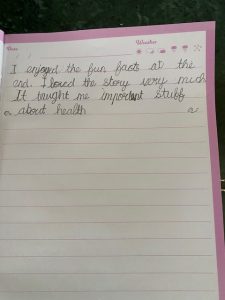 Date
Weather
I enjoyed the fun facts at the
end. I loved the story very much
It taught me important stuff
about health